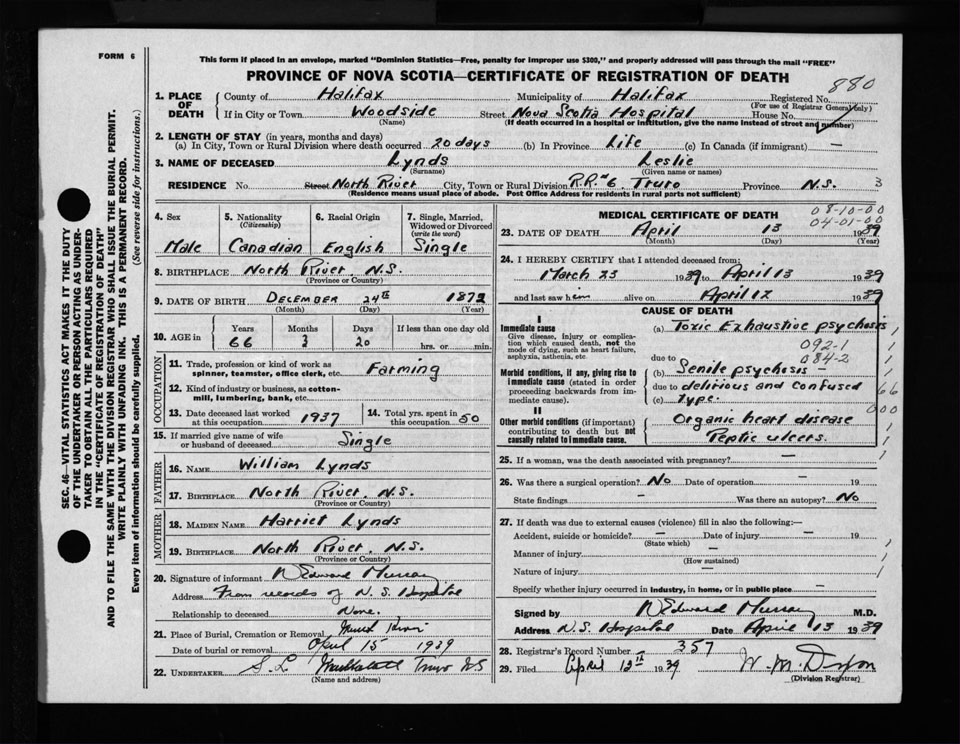 FORM 6
This form if placed in an envelope, marked "Dominion Statistics—Free, penalty for improper use $300," and properly addressed will pass through the mail "FREE"
PROVINCE OF NOVA SCOTIA—CERTIFICATE OF REGISTRATION OF DEATH
880
1. PLACE OF DEATH
County of Halifax Municipality of Halifax Registered No.
(For use of Registrar General only)
If in City or Town Woodside Street Nova Scotia Hospital House No.
(Name) (If death occurred in a hospital or institution, give the name instead of street and number)
2. LENGTH OF STAY (in years, months and days)
(a) In City, Town or Rural Division where death occurred 20 days (b) In Province Life (c) In Canada (if immigrant) —
3. NAME OF DECEASED Lynds Leslie
(Surname) (Given name or names)
RESIDENCE No. Street North River City, Town or Rural Division R.R.#6. Truro Province N.S. 3
(Residence means usual place of abode. Post Office Address for residents in rural parts not sufficient)
SEC. 46—VITAL STATISTICS ACT MAKES IT THE DUTY
OF THE UNDERTAKER OR PERSON ACTING AS UNDER-
TAKER TO OBTAIN ALL THE PARTICULARS REQUIRED
IN THE "CERTIFICATE OF REGISTRATION OF DEATH"
AND TO FILE THE SAME WITH THE DIVISION REGISTRAR WHO SHALL ISSUE THE BURIAL PERMIT.
WRITE PLAINLY WITH UNFADING INK. THIS IS A PERMANENT RECORD.
Every item of information should be carefully supplied. (See reverse side for instructions.)
4. Sex Male
5. Nationality (Citizenship) Canadian
6. Racial Origin English
7. Single, Married, Widowed or Divorced (write the word) Single
8. BIRTHPLACE North River, N.S.
(Province or Country)
9. DATE OF BIRTH December 24th 1872
(Month) (Day) (Year)
10. AGE in Years 66 Months 3 Days 20 If less than one day old hrs. or min.
OCCUPATION
11. Trade, profession or kind of work as spinner, teamster, office clerk, etc. Farming
12. Kind of industry or business, as cotton-mill, lumbering, bank, etc.
13. Date deceased last worked at this occupation 1937
14. Total yrs. spent in this occupation 50
15. If married give name of wife or husband of deceased Single
FATHER
16. NAME William Lynds
17. BIRTHPLACE North River, N.S.
(Province or Country)
MOTHER
18. MAIDEN NAME Harriet Lynds
19. BIRTHPLACE North River, N.S.
(Province or Country)
20. Signature of informant W Edward Murray
Address From records of N. S. Hospital
Relationship to deceased None.
21. Place of Burial, Cremation or Removal River
Date of burial or removal April 15 1939
22. UNDERTAKER S. L. Truro NS
(Name and address)
MEDICAL CERTIFICATE OF DEATH
08-10-00
04-01-00
23. DATE OF DEATH April 13 1939
(Month) (Day) (Year)
24. I HEREBY CERTIFY that I attended deceased from:
March 23 1939 to April 13 1939
and last saw him alive on April 12 1939
CAUSE OF DEATH
I
Immediate cause
Give disease, injury or complication which caused death, not the mode of dying, such as heart failure, asphyxia, asthenia, etc.
(a) Toxic Exhaustive psychosis
092-1
084-2
due to
Morbid conditions, if any, giving rise to immediate cause (stated in order proceeding backwards from immediate cause).
(b) Senile psychosis —
due to delirious and confused
(c) type.
66
000
II
Other morbid conditions (if important) contributing to death but not causally related to immediate cause.
Organic heart disease
Peptic ulcers.
25. If a woman, was the death associated with pregnancy? —
26. Was there a surgical operation? No Date of operation — 19
State findings — Was there an autopsy? No
27. If death was due to external causes (violence) fill in also the following:—
Accident, suicide or homicide? — Date of injury — 19
(State which)
Manner of injury —
(How sustained)
Nature of injury —
Specify whether injury occurred in industry, in home, or in public place —
Signed by W Edward Murray M.D.
Address N.S. Hospital Date April 13 1939
28. Registrar's Record Number 357
29. Filed April 13th 1939 W. M. Dixon
(Division Registrar)